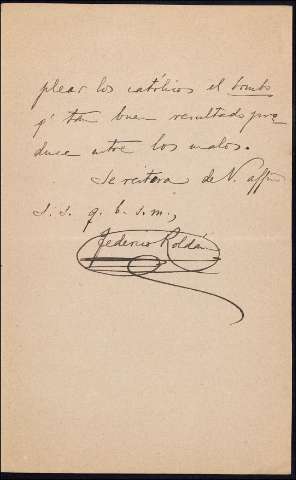 plear los católicos el bombo
q' tan buen resultado pro
duce entre los malos.
Se reitera de V. affmo
s. s. q. b. s. m.,
Federico Roldán